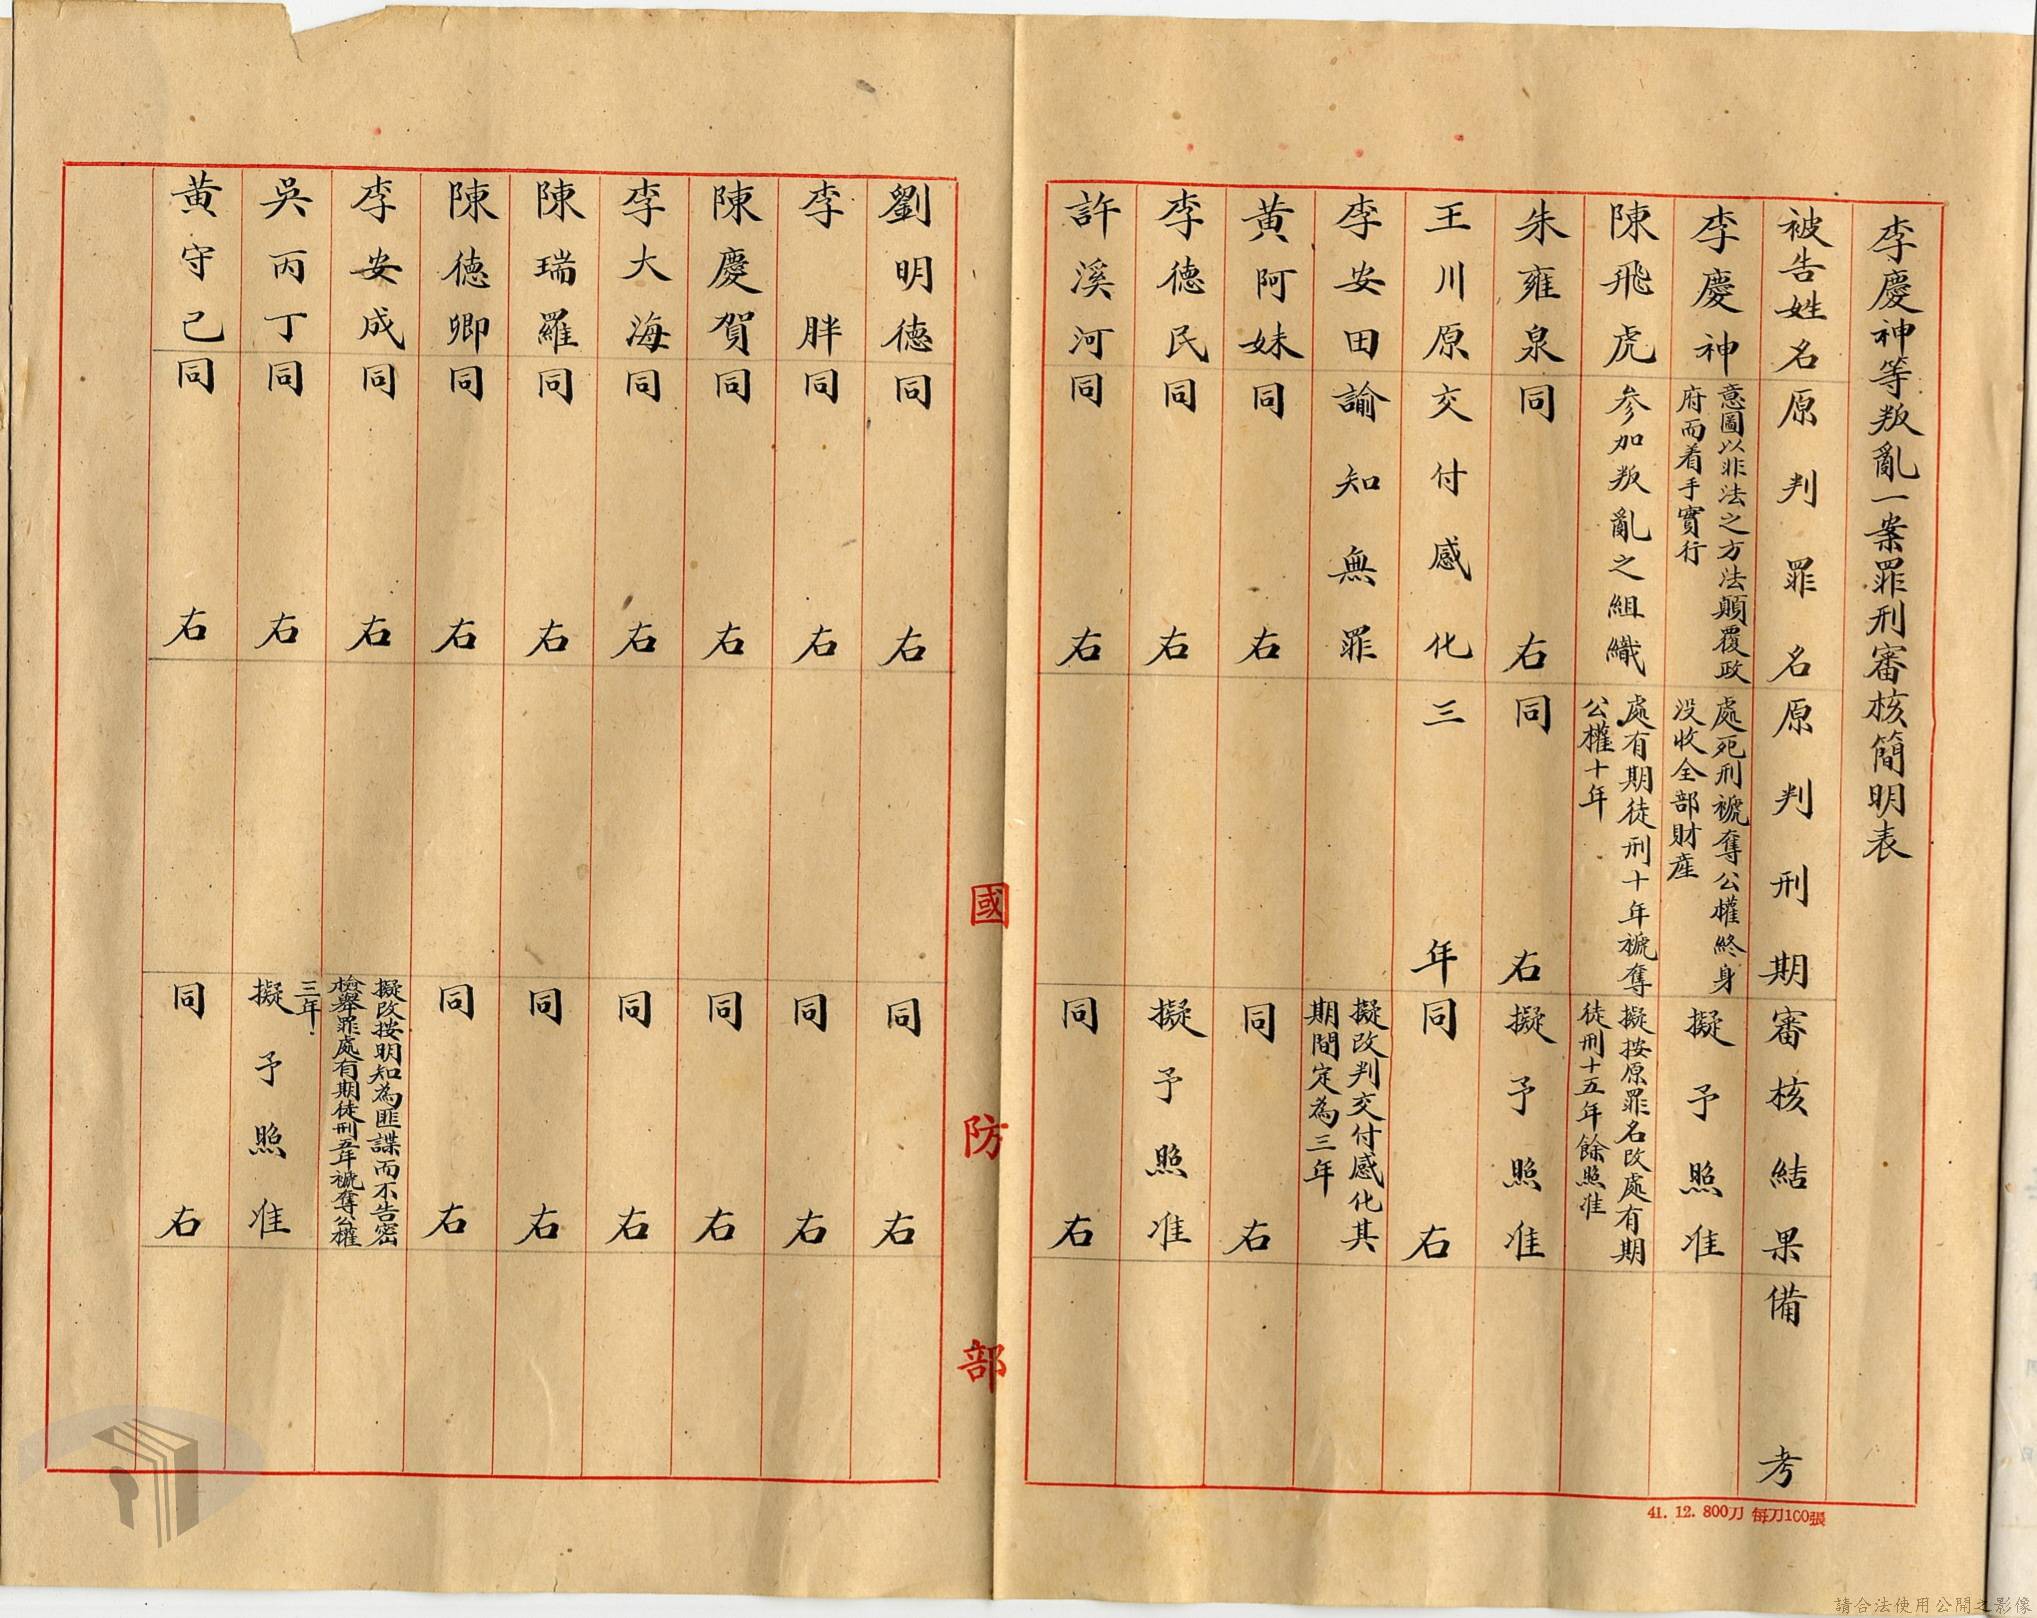 李慶神等叛亂一案罪刑審核簡明表
被告姓名 原判罪名 原判刑期 審核結果 備考
李慶神 意圖以非法之方法顛覆政
府而着手實行
處死刑褫奪公權終身
沒收全部財產
擬予照准
陳飛虎 參加叛亂之組織
處有期徒刑十年褫奪
公權十年
擬按原罪名改處有期
徒刑十五年餘照准
朱雍泉 同右 同右 擬予照准
王川原 交付感化 三年 同右
李安田 諭知無罪
擬改判交付感化其
期間定為三年
黃阿妹 同右 同右
李德民 同右 擬予照准
許溪河 同右 同右
國防部
劉明德 同右 同右
李胖 同右 同右
陳慶賀 同右 同右
李大海 同右 同右
陳瑞羅 同右 同右
陳德卿 同右 同右
李安成 同右
擬改按明知為匪諜而不告密
檢舉罪處有期徒刑五年褫奪公權
三年
吳丙丁 同右 擬予照准
黃守己 同右 同右
41. 12. 800刀 每刀100張
請合法使用公開之影像